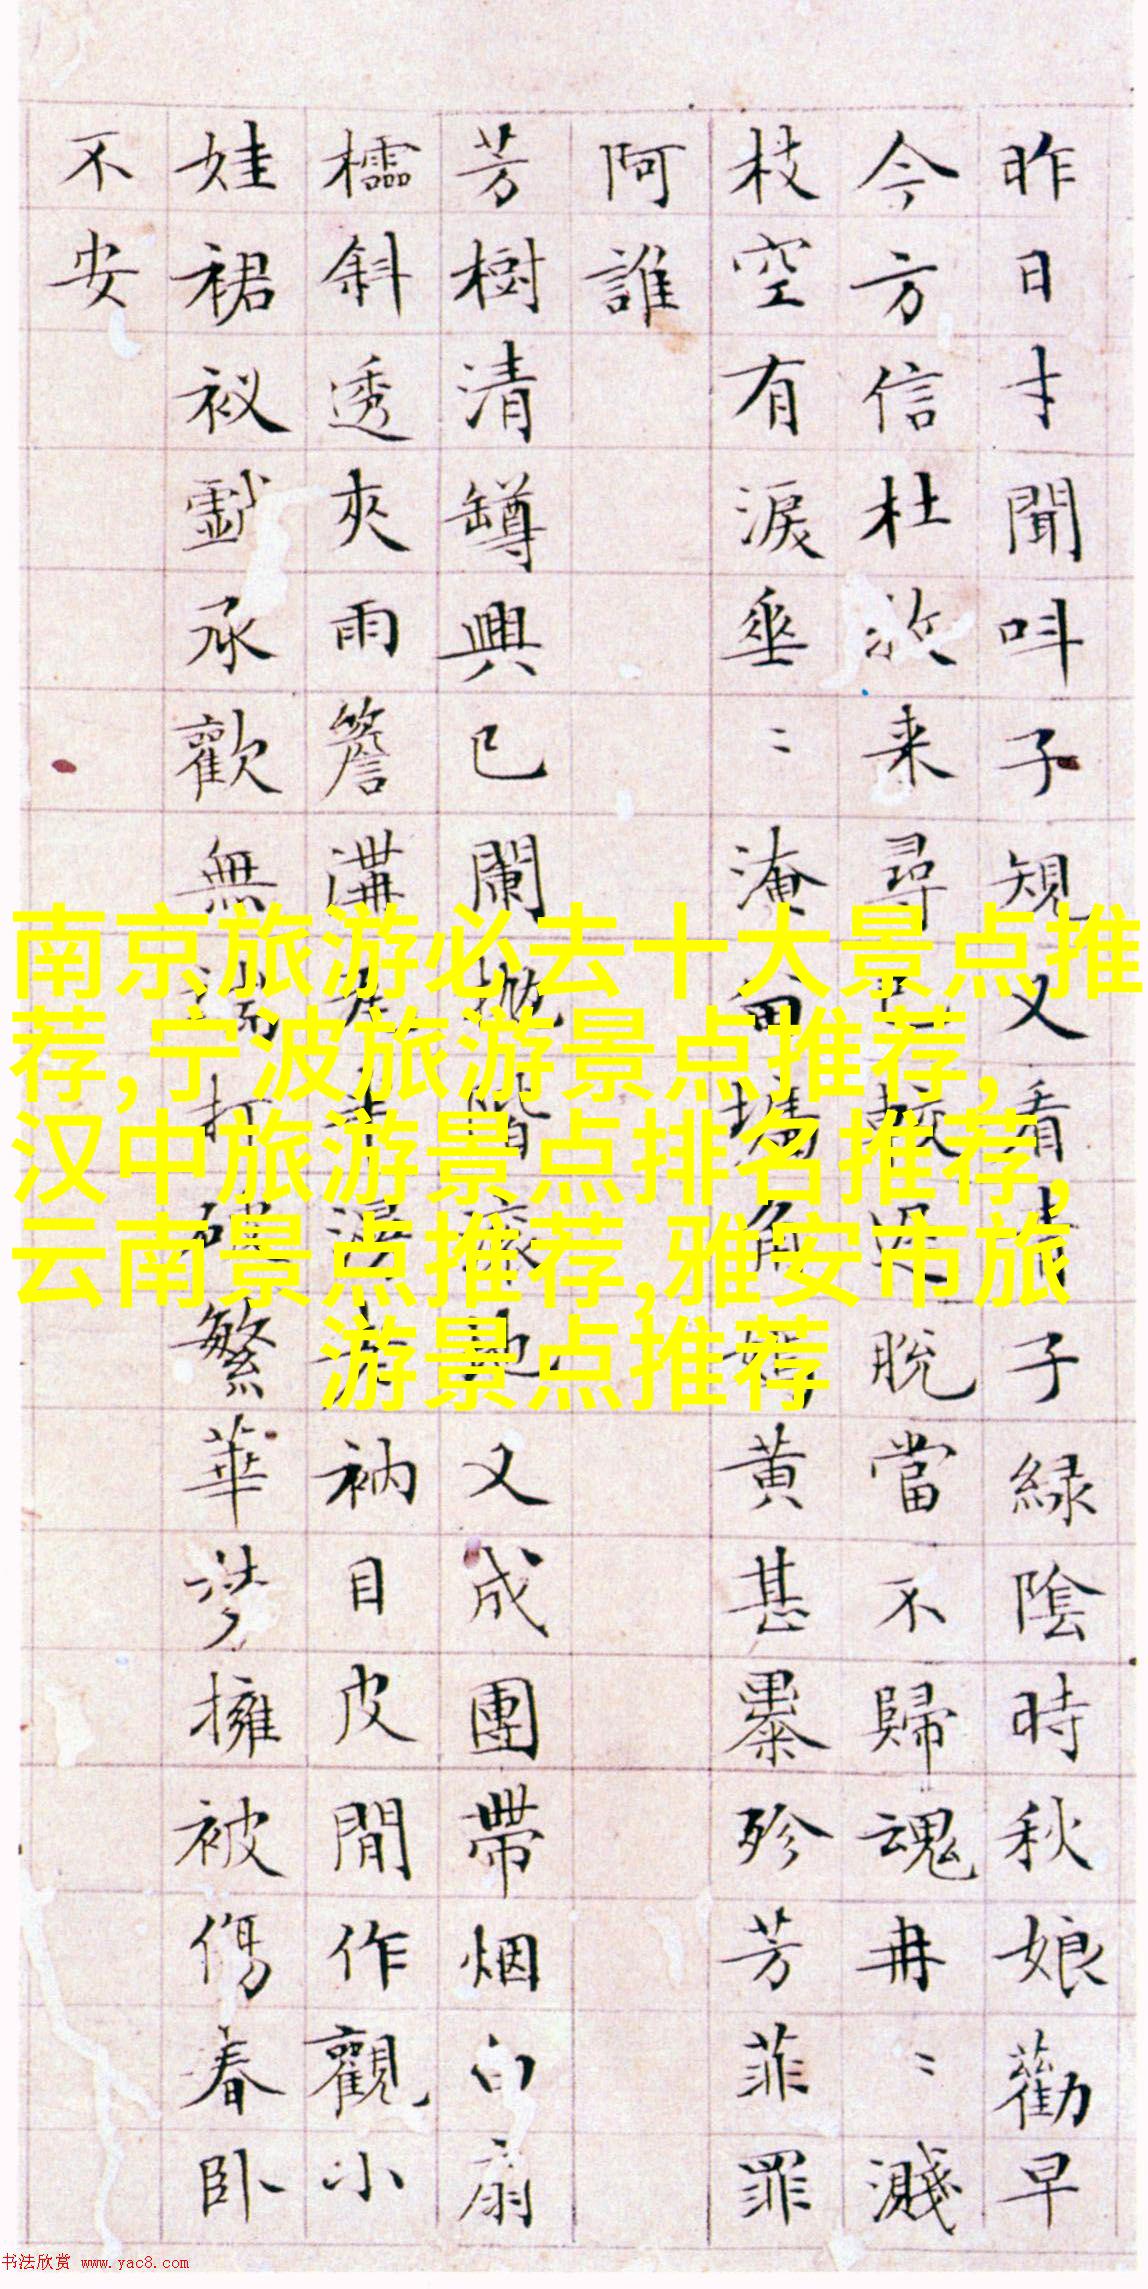 昨日才聞呌子規又看青子緑陰時秋娘勸早
今方信杜来尋較遲脫當不歸魂冉〻濺
枝空有淚垂〻淹留塲角嫣黃甚纍殄芳菲罪
阿誰
芳樹清罇興已闌拋階滾地又成團帶烟白扇
櫺斜透夾雨簷溝老淚衲目皮間作觀小
娃裙衩戲承歡無端打破繁華夢擁被傷春卧
不安
南京旅游必去十大景点推
荐,宁波旅游景点推荐,
汉中旅游景点排名推荐,
云南景点推荐,雅安市旅
游景点推荐
书法欣赏 www.yac8.com